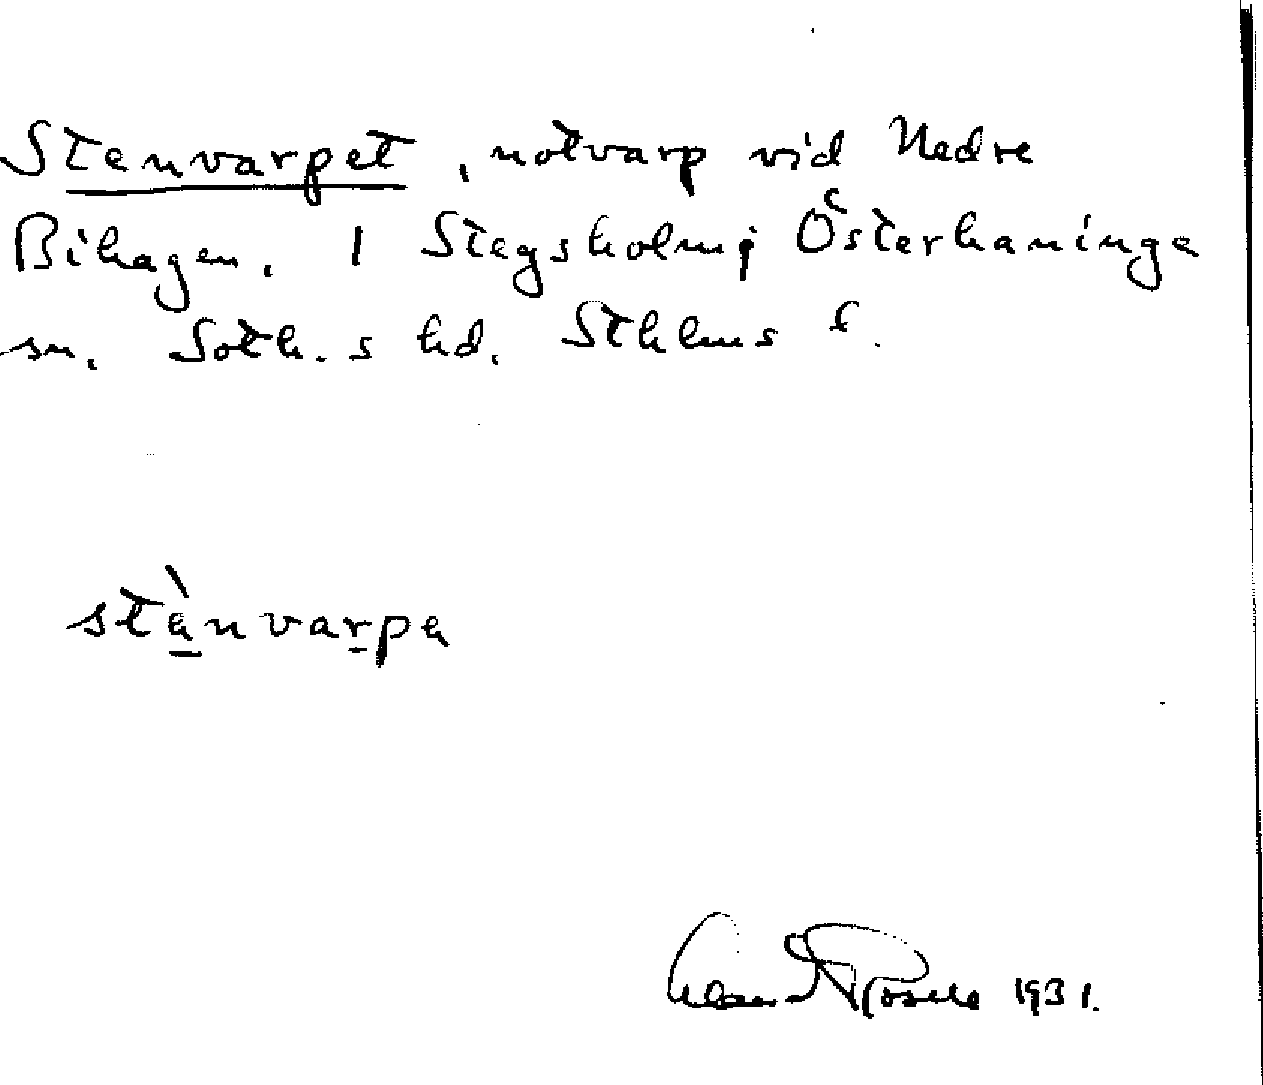 Stenvarpet, notvarp vid Nedre
Bihagen. I Stegsholm, Österhaninge
sn. Soth.s hd. Sthlms l.
stènvarpe
1931.